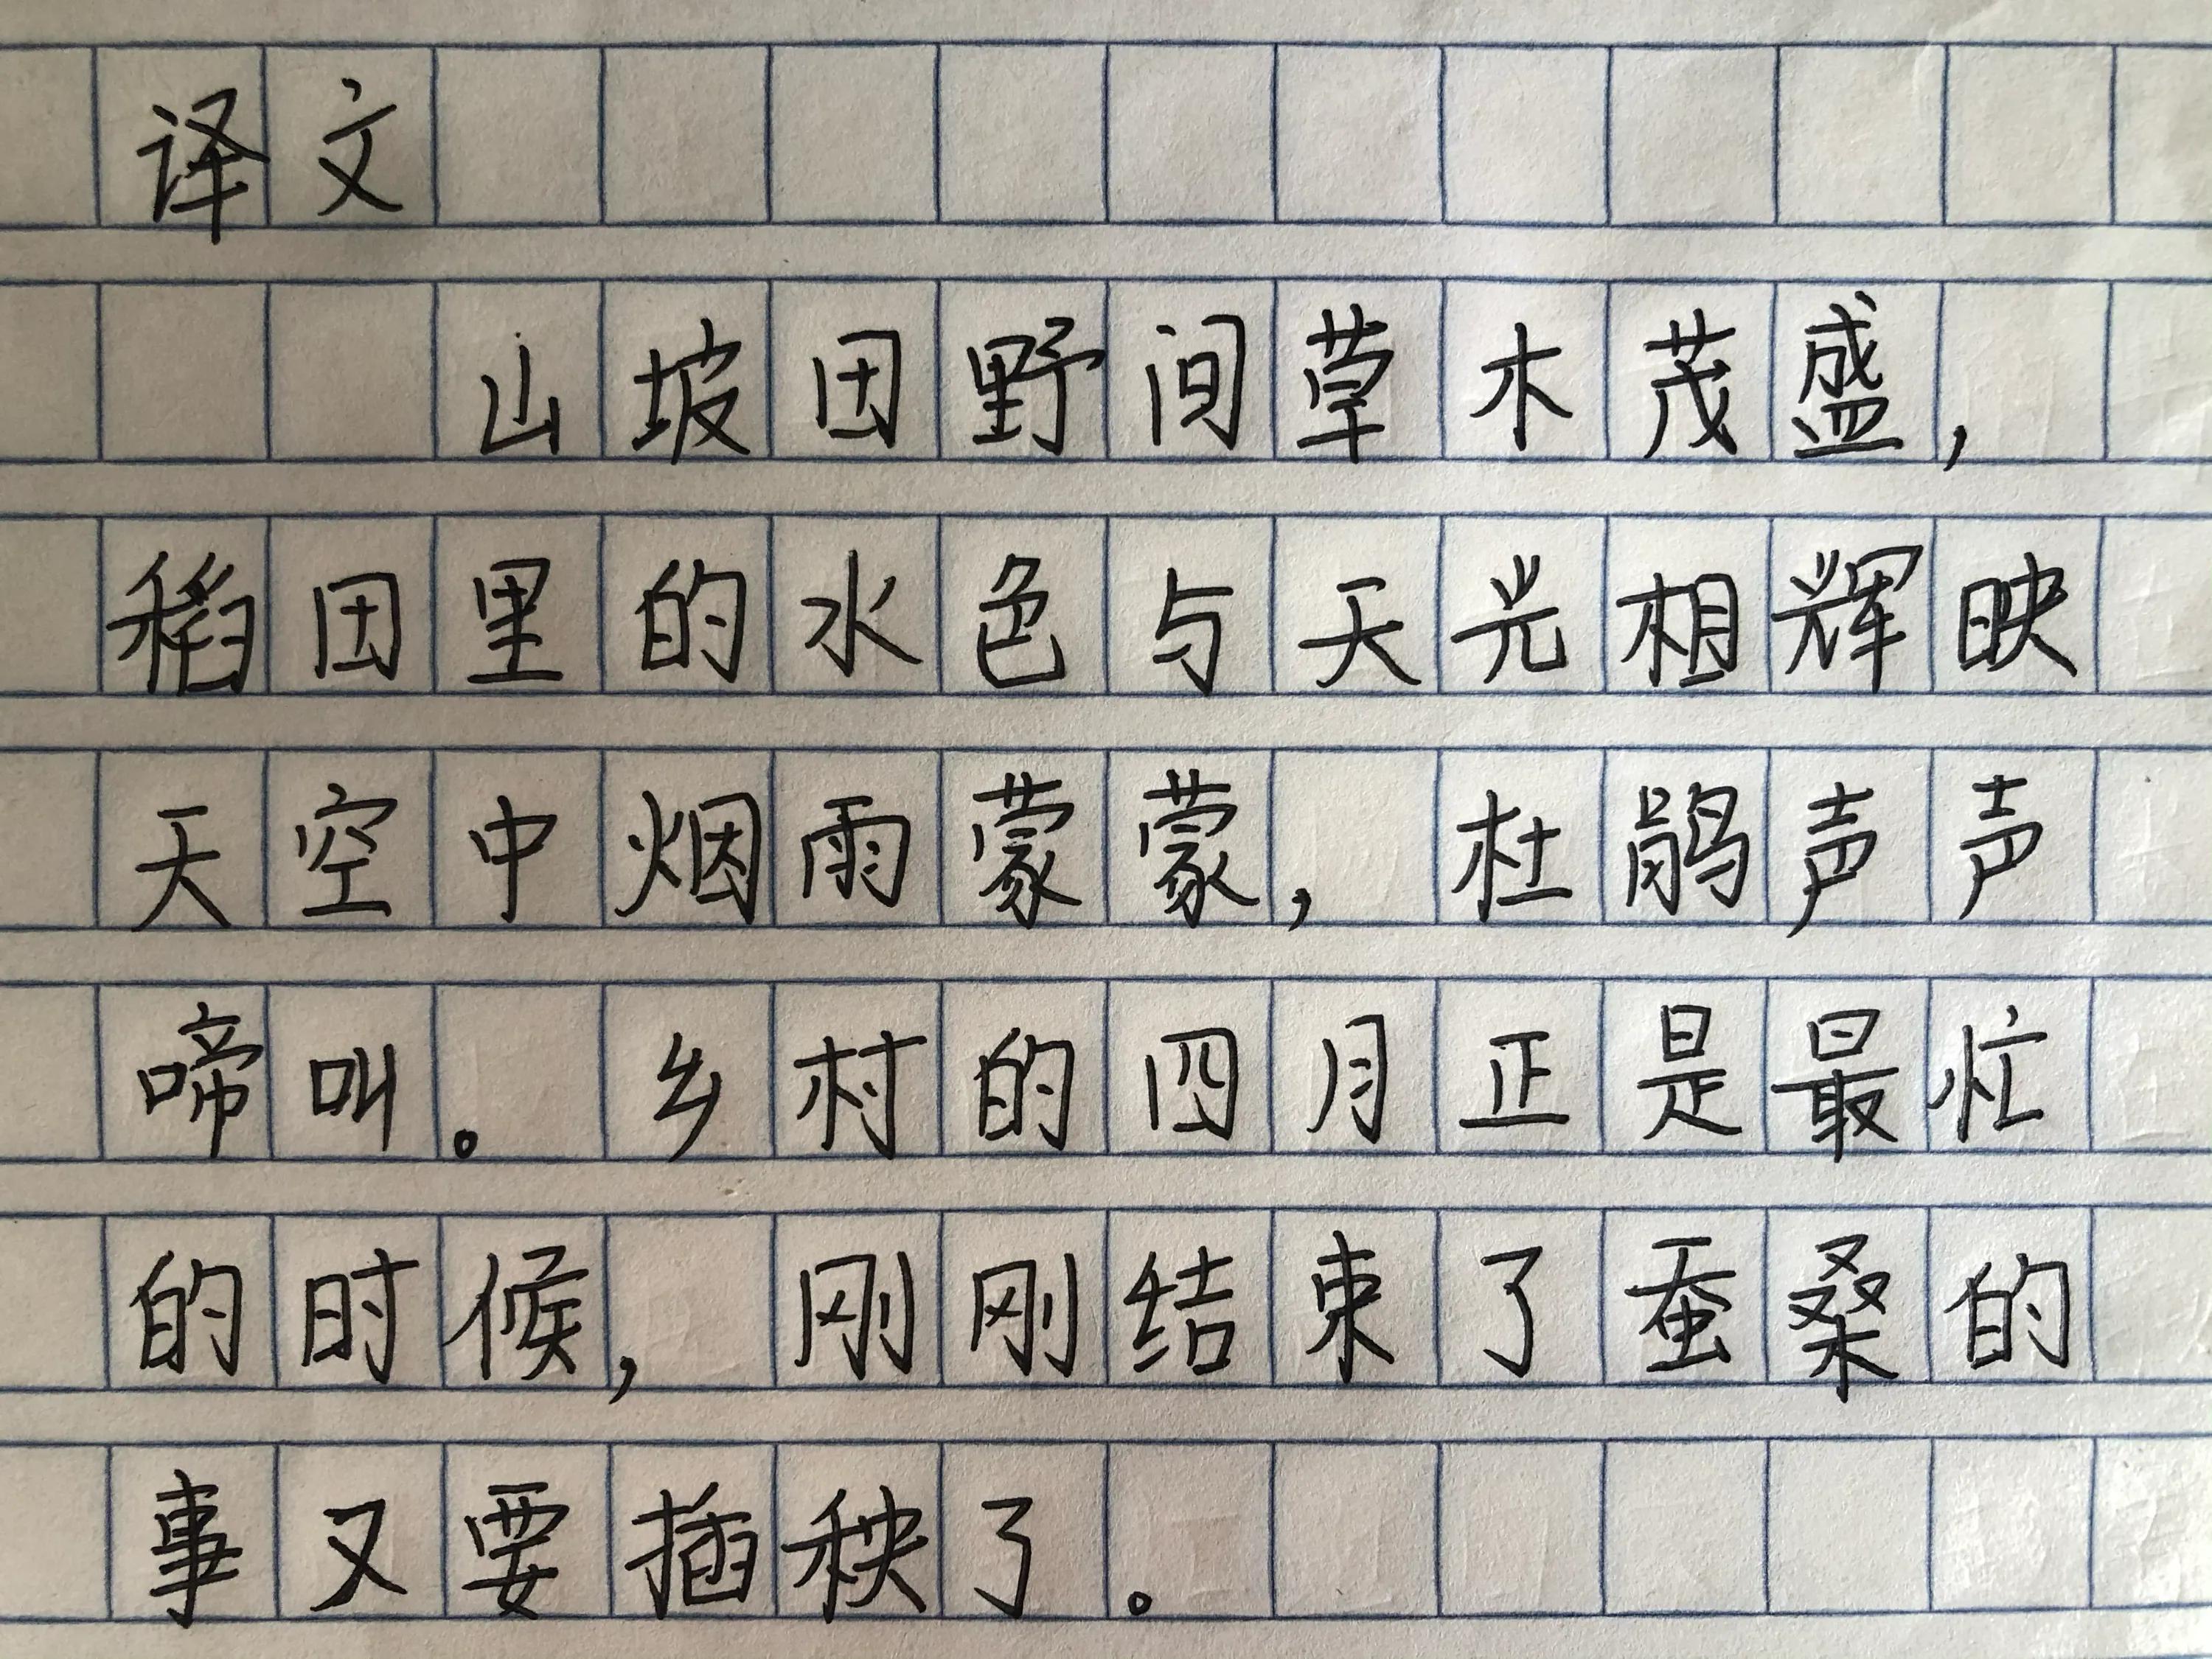 译文
山坡田野间草木茂盛，
稻田里的水色与天光相辉映
天空中烟雨蒙蒙，杜鹃声声
啼叫。乡村的四月正是最忙
的时候，刚刚结束了蚕桑的
事又要插秧了。